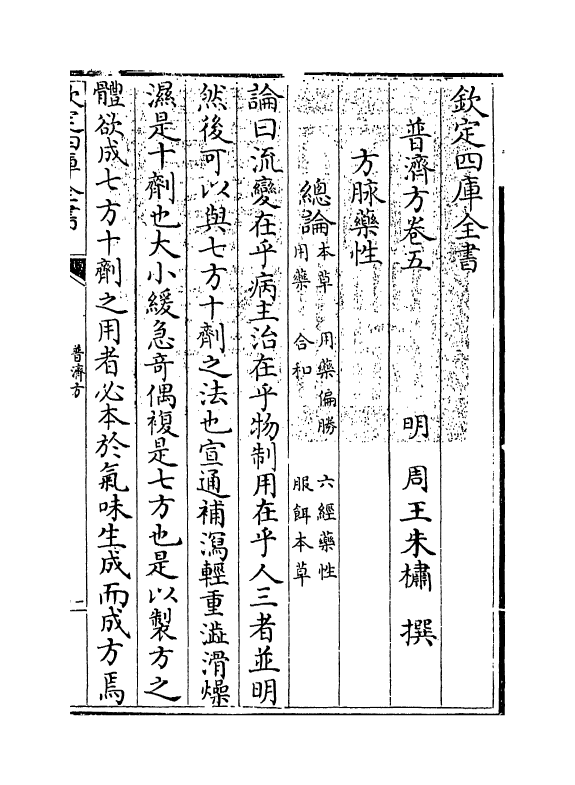 欽定四庫全書
普濟方卷五
明 周王朱橚 撰
方脉藥性
總論
本草 用藥偏勝 六經藥性
用藥 合和 服餌本草
論曰流變在乎病主治在乎物制用在乎人三者並明
然後可以與七方十劑之法也宣通補瀉輕重澁滑燥
濕是十劑也大小緩急奇偶複是七方也是以製方之
體欲成七方十劑之用者必本於氣味生成而成方焉
欽定四庫全書
普濟方